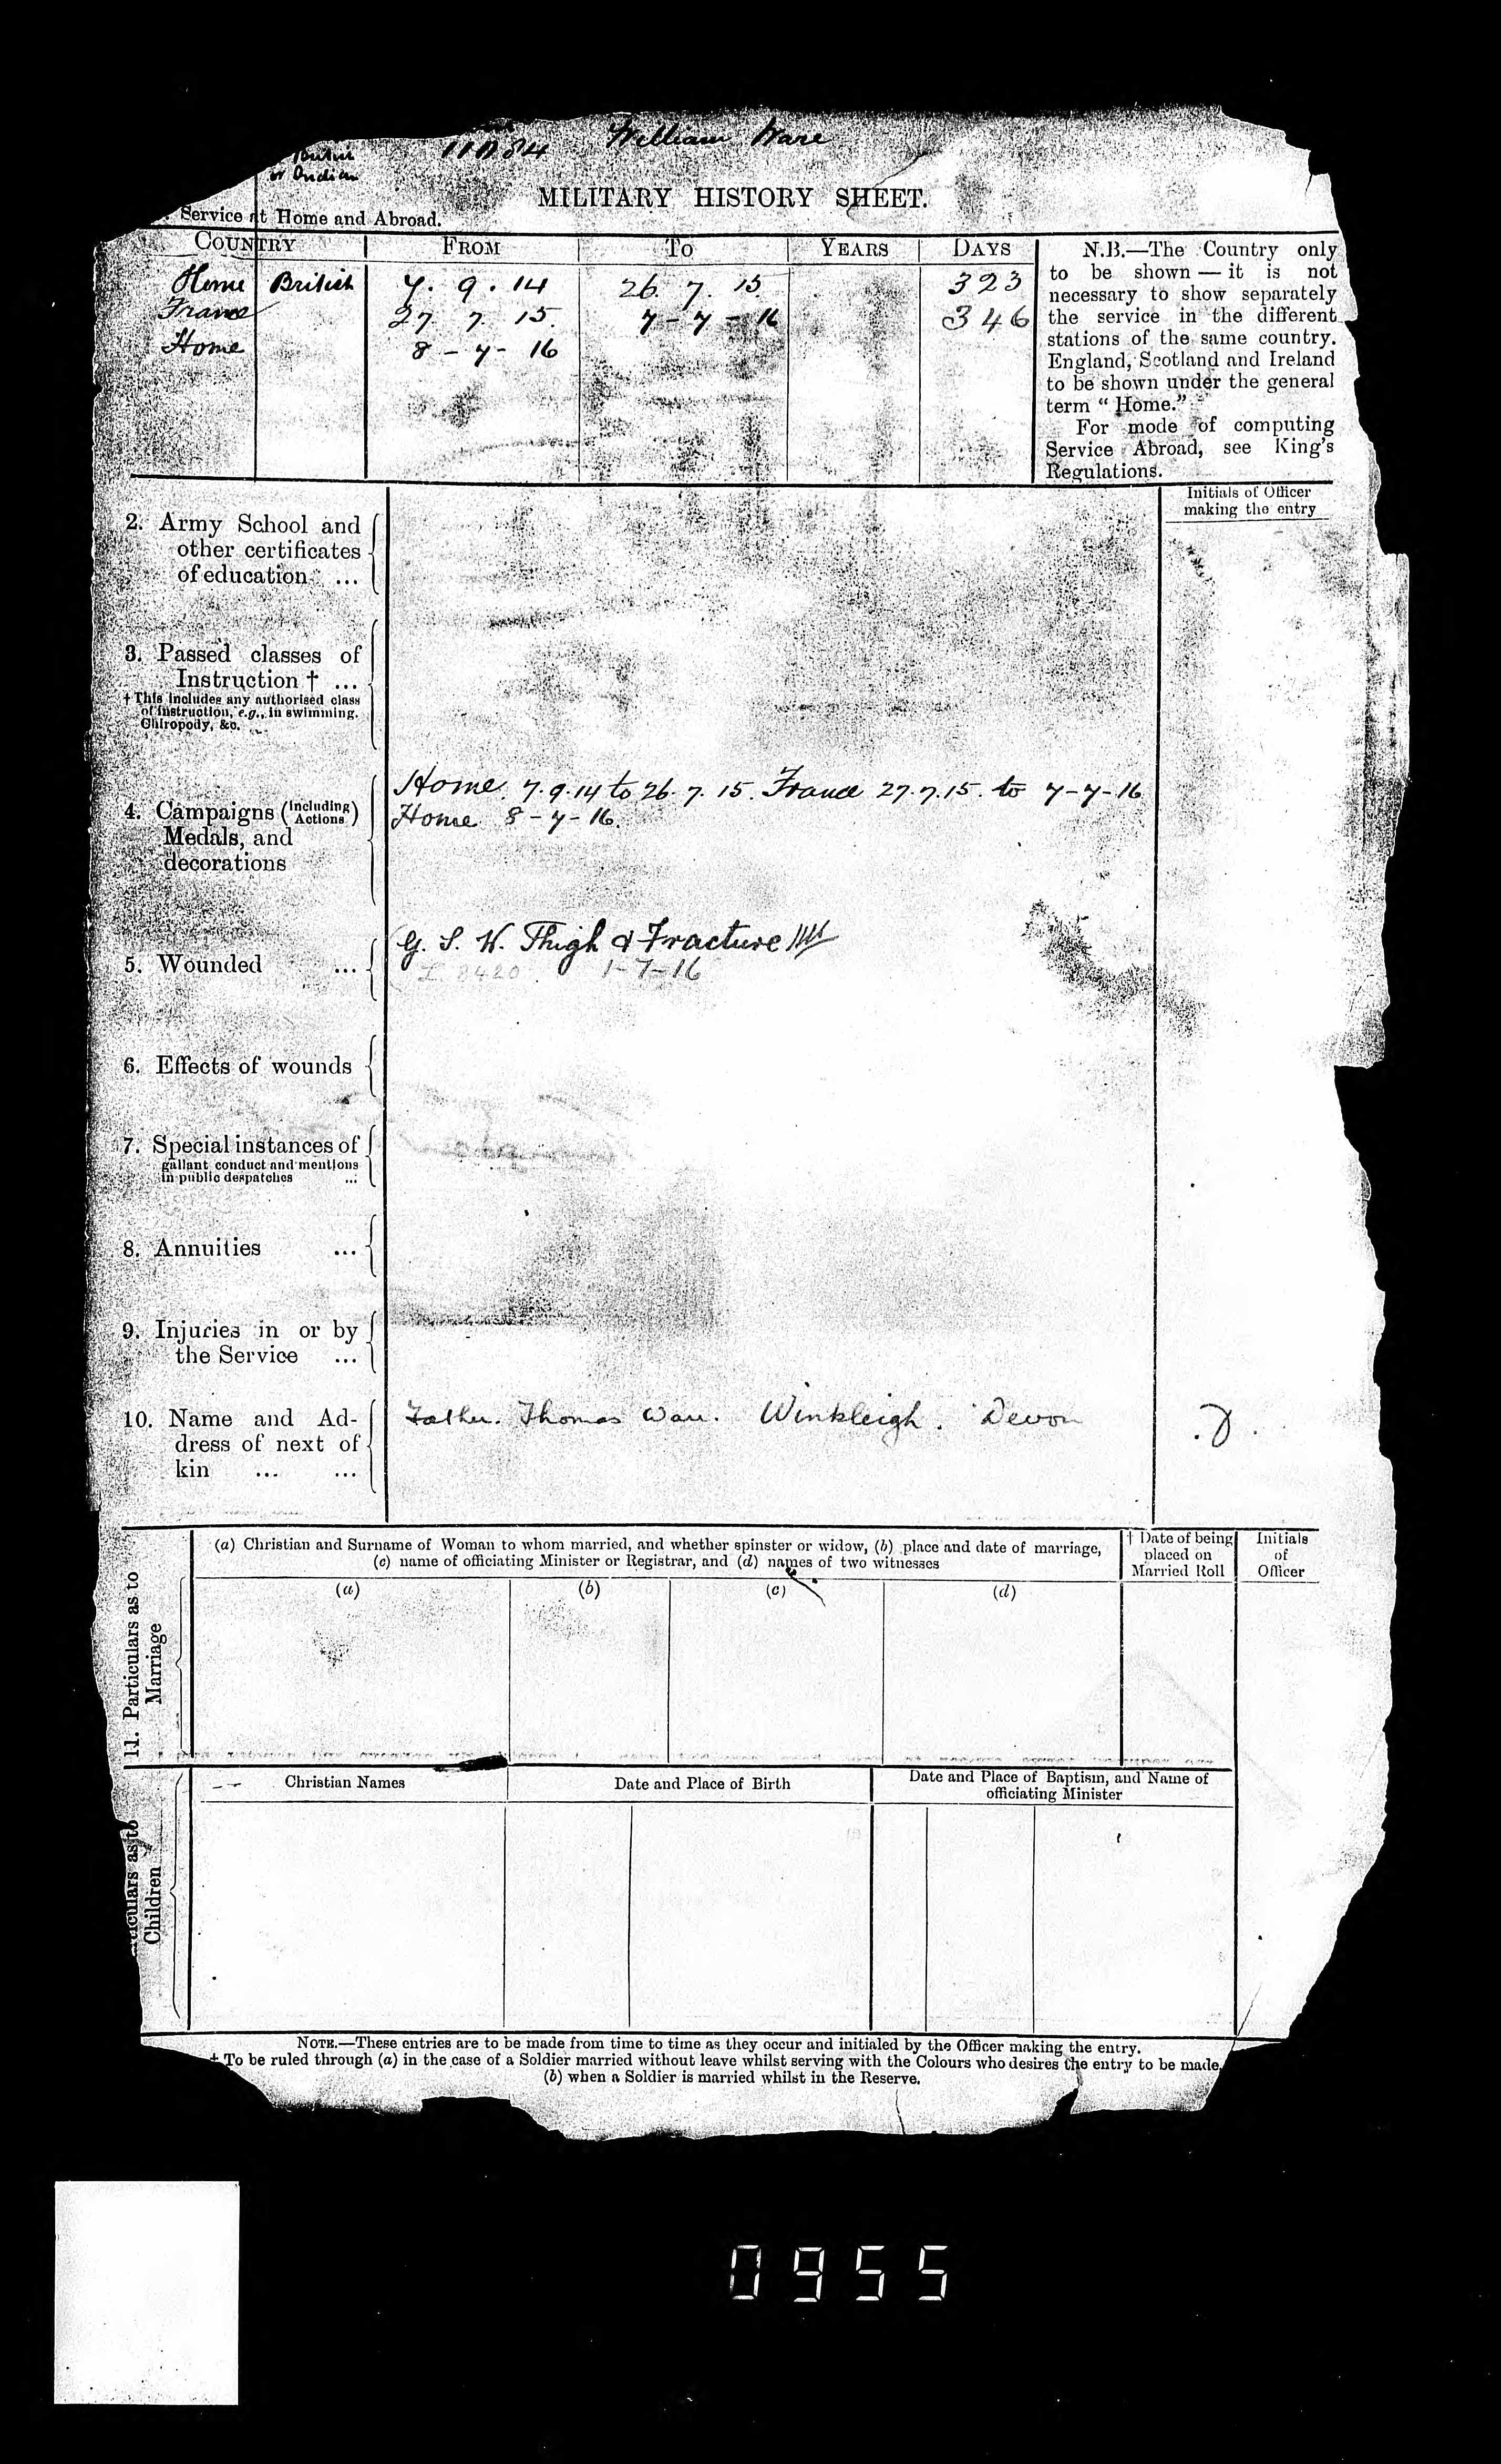 William Ware
or Indian
MILITARY HISTORY SHEET.
Service at Home and Abroad.
COUNTRY FROM TO YEARS DAYS
Home British 7. 9. 14 26. 7. 15. 323
France 27. 7. 15. 7-7-16 346
Home 8-7-16
N.B.—The Country only
to be shown — it is not
necessary to show separately
the service in the different
stations of the same country.
England, Scotland and Ireland
to be shown under the general
term "Home."
For mode of computing
Service Abroad, see King's
Regulations.
Initials of Officer
making the entry
2. Army School and
other certificates
of education ...
3. Passed classes of
Instruction † ...
† This includes any authorised class
of instruction, e.g., in swimming,
Chiropody, &c.
4. Campaigns (Including Actions)
Medals, and
decorations
Home. 7.9.14 to 26.7.15. France 27.7.15. to 7-7-16
Home 8-7-16.
5. Wounded ...
G. S. W. Thigh & Fracture
1-7-16
6. Effects of wounds
7. Special instances of
gallant conduct and mentions
in public despatches ...
8. Annuities ...
9. Injuries in or by
the Service ...
10. Name and Ad-
dress of next of
kin ... ...
Father. Thomas Ware. Winkleigh. Devon
11. Particulars as to
Marriage
(a) Christian and Surname of Woman to whom married, and whether spinster or widow, (b) place and date of marriage,
(c) name of officiating Minister or Registrar, and (d) names of two witnesses
† Date of being
placed on
Married Roll
Initials
of
Officer
(a) (b) (c) (d)
iculars as to
Children
Christian Names Date and Place of Birth
Date and Place of Baptism, and Name of
officiating Minister
NOTE.—These entries are to be made from time to time as they occur and initialed by the Officer making the entry.
† To be ruled through (a) in the case of a Soldier married without leave whilst serving with the Colours who desires the entry to be made,
(b) when a Soldier is married whilst in the Reserve.
0955